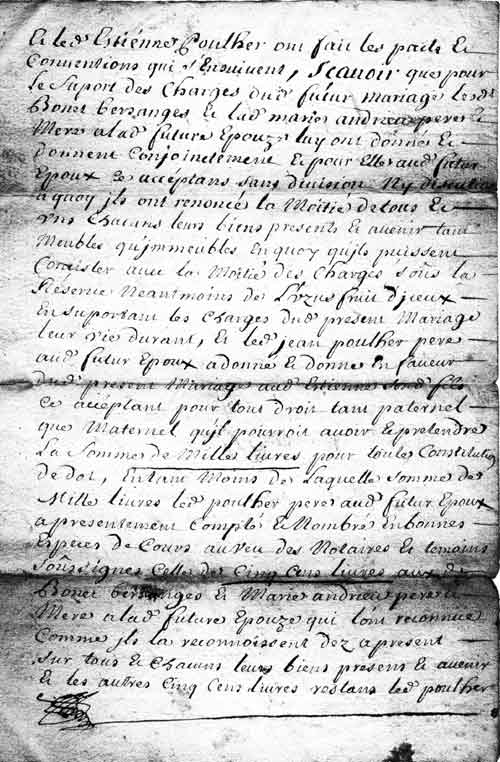 Et led Estiénne Poulher ont fait les pacts Et
Conventions qui s'Ensuivent, scavoir que pour
Le Suport des Charges dud futur mariage lesd
Bonet berzanges, Et lad marie andree pere Et
Mere alad future Epouze luy ont donné Et
donnent Conjoinctement Et pour Elle aud futur
Epoux Ce acceptans sans division Ny discution
a quoy jls ont renoncé la Moitié de tous Et
Uns Chacuns leurs biens presents Et avenir tant
Meubles qu'immeubles En quoy qu'ils puissent
Concister avec la Moitié des Charges sous la
Reserve Neantmoins de L'uzus fruit d'jceux
En suportant les Charges dud present Mariage
leur vie durant, Et led jean poulher pere
aud futur Epoux a donné Et donne En faveur
dud present Mariage aud Estienne son fils
Ce accéptant pour tout droit tant paternel
que Maternel qu'jl pourroit avoir Et pretendre
La Somme de Milles livres pour toute Constitution
de dot, En tant Moins de Laquelle Somme de
Mille livres led poulher pere aud futur Epoux
a presentement Compté Et Nombré En bonnes
Especes de Cours au veu des Notaires Et temoins
Soûssignes Celle de Cinq Cens livres aux d
Bonet berzanges Et Marie andrieu pere Et
Mere alad future Epouze qui l'ont reconnue
Comme jls la reconnoissent dez a present
Sur tous Et chacuns leurs biens present Et avenir
Et les autres Cinq Cens livres restans led poulher